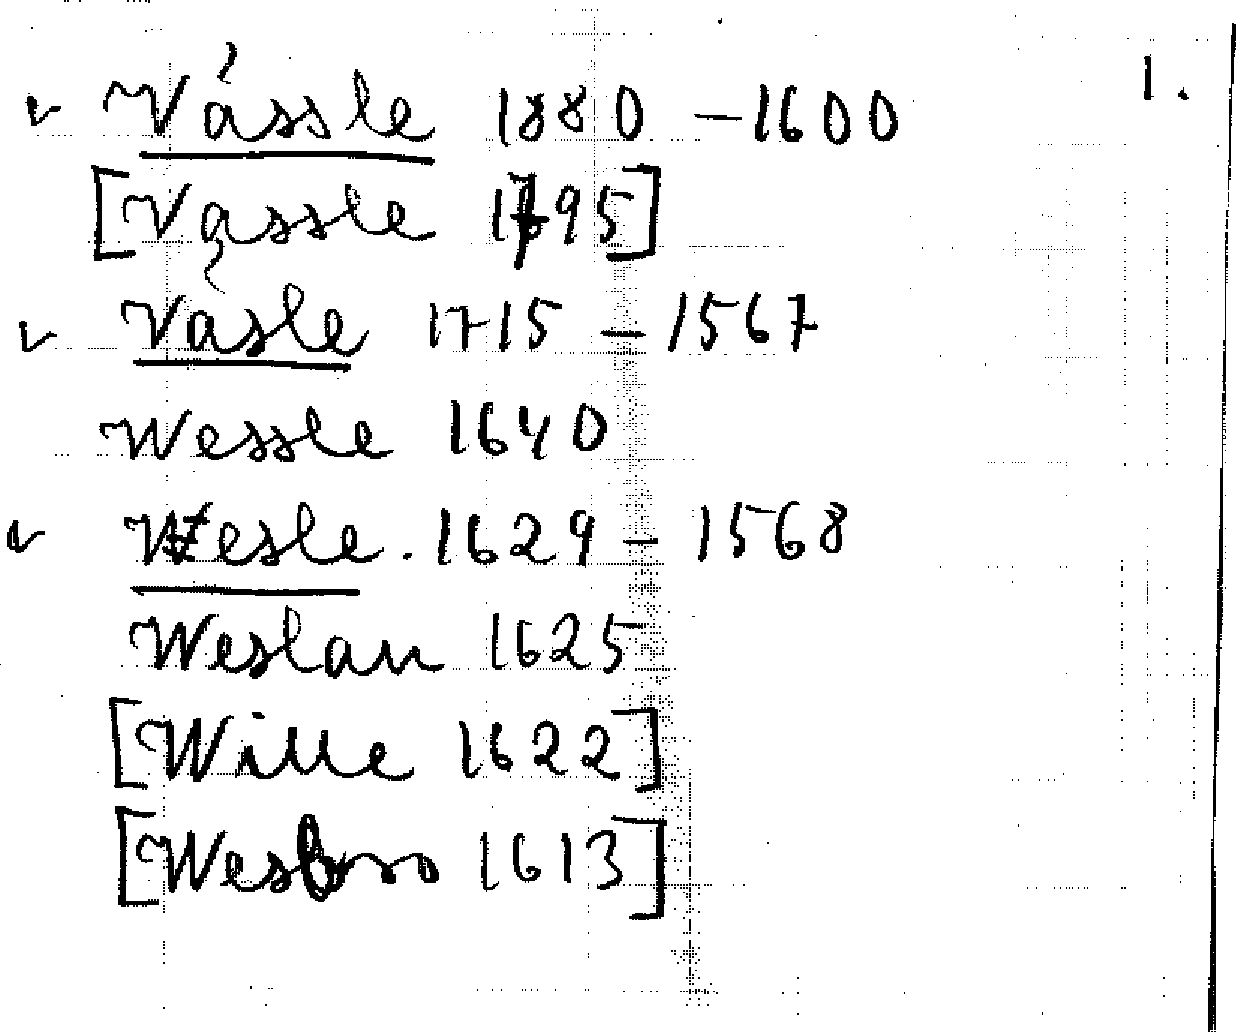 v Vássle 1880 – 1600 1.
[Vassle 1795]
v Våsle 1715 – 1567
Wessle 1640
v Wesle. 1629 – 1568
Weslan 1625
[Wille 1622]
[Wesbro 1613]